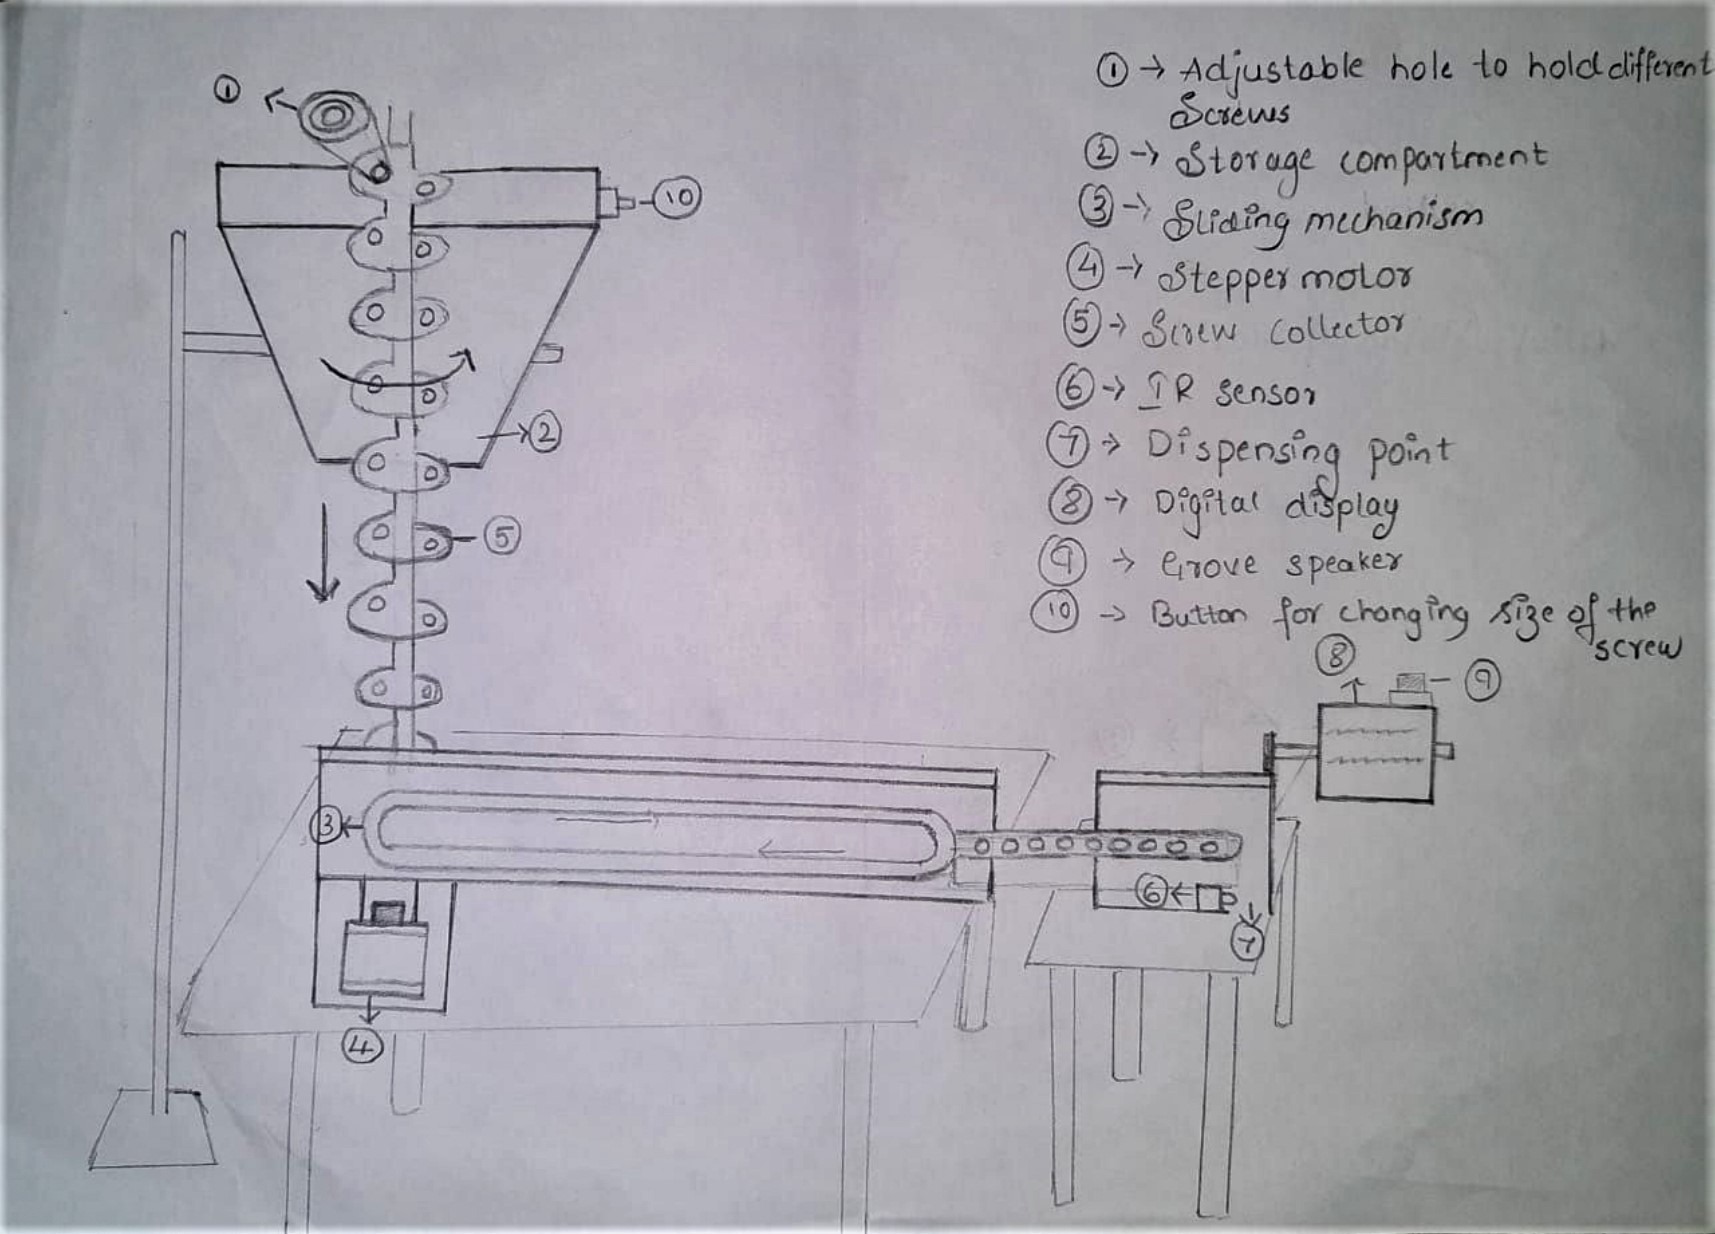 ① → Adjustable hole to hold different
Screws
② → Storage compartment
③ → Sliding mechanism
④ → Stepper motor
⑤ → Screw collector
⑥ → IR sensor
⑦ → Dispensing point
⑧ → Digital display
⑨ → Grove speaker
⑩ → Button for changing size of the
screw
①
⑩
②
⑤
⑧
⑨
③
⑥
⑦
④